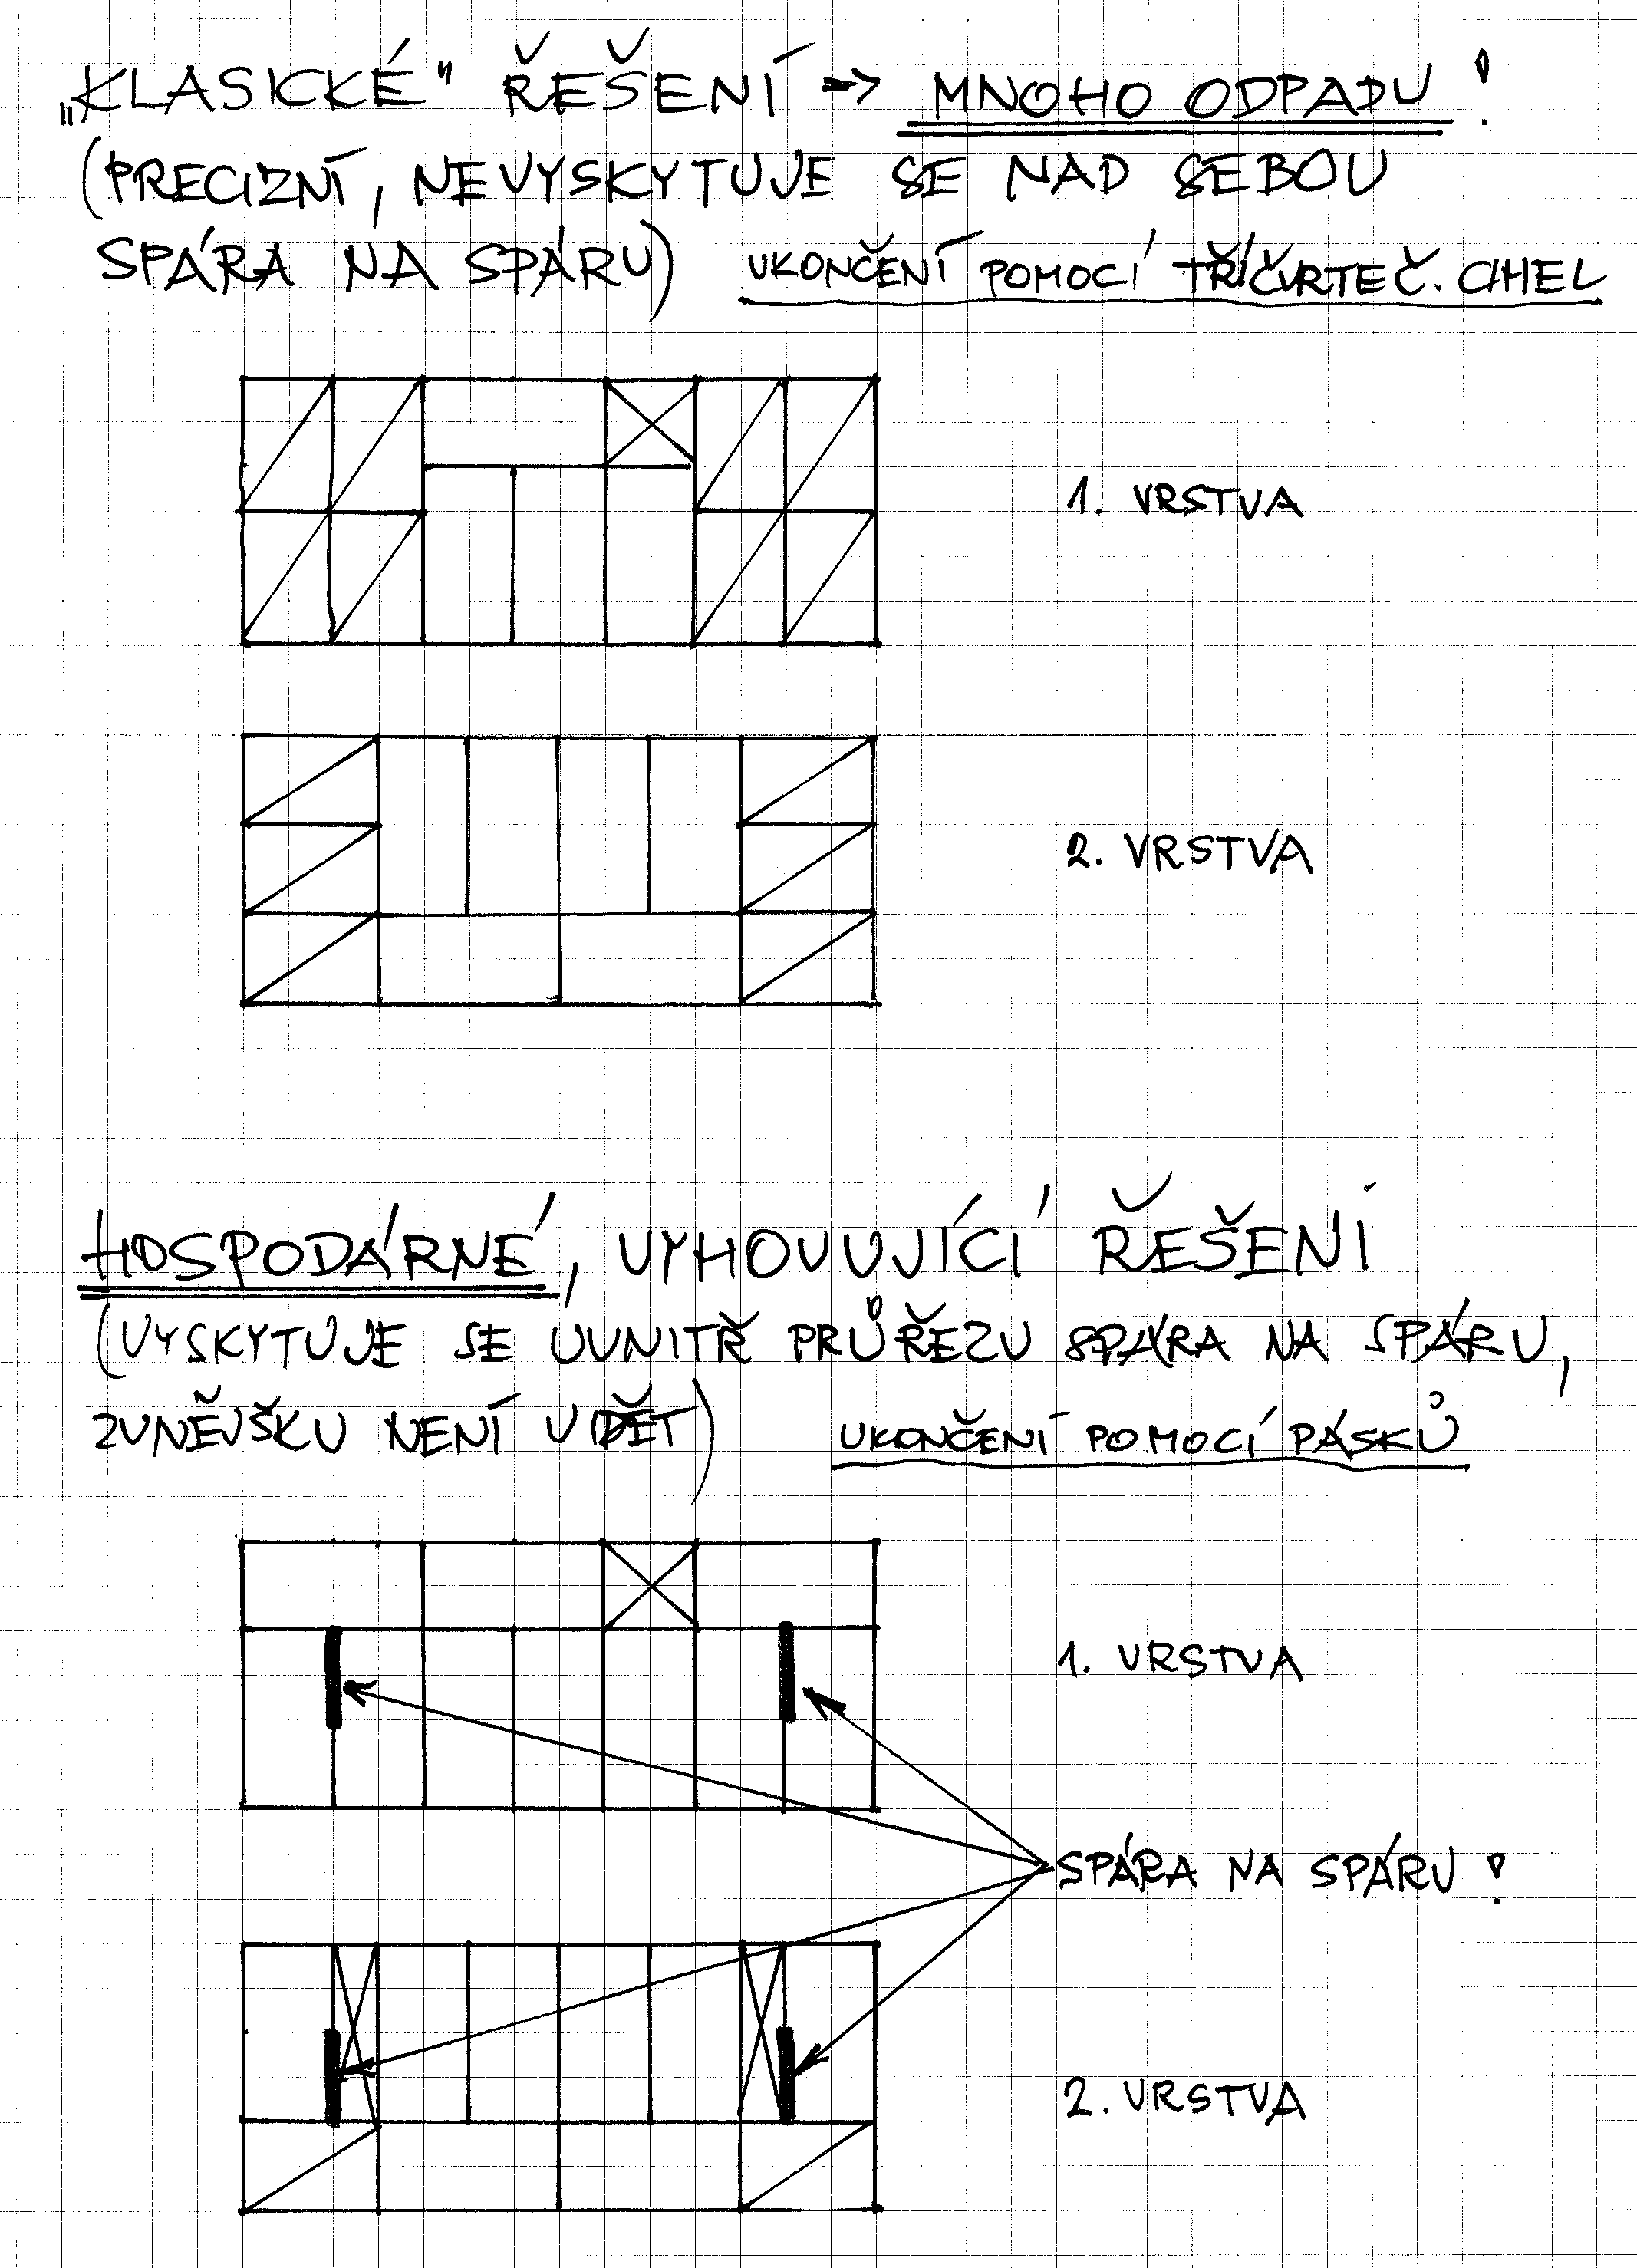 „KLASICKÉ" ŘEŠENÍ => MNOHO ODPADU!
(PRECIZNÍ, NEVYSKYTUJE SE NAD SEBOU
SPÁRA NA SPÁRU) UKONČENÍ POMOCÍ TŘÍČVRTEČ. CIHEL
1. VRSTVA
2. VRSTVA
HOSPODÁRNÉ, VYHOVUJÍCÍ ŘEŠENÍ
(VYSKYTUJE SE UVNITŘ PRŮŘEZU SPÁRA NA SPÁRU,
ZVNĚJŠKU NENÍ VIDĚT) UKONČENÍ POMOCÍ PÁSKŮ
1. VRSTVA
SPÁRA NA SPÁRU!
2. VRSTVA